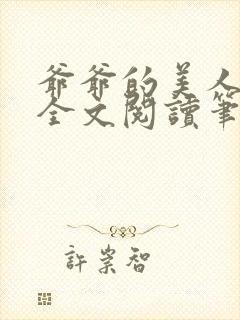 爺爺的美人
全文閱讀筆
許崇智